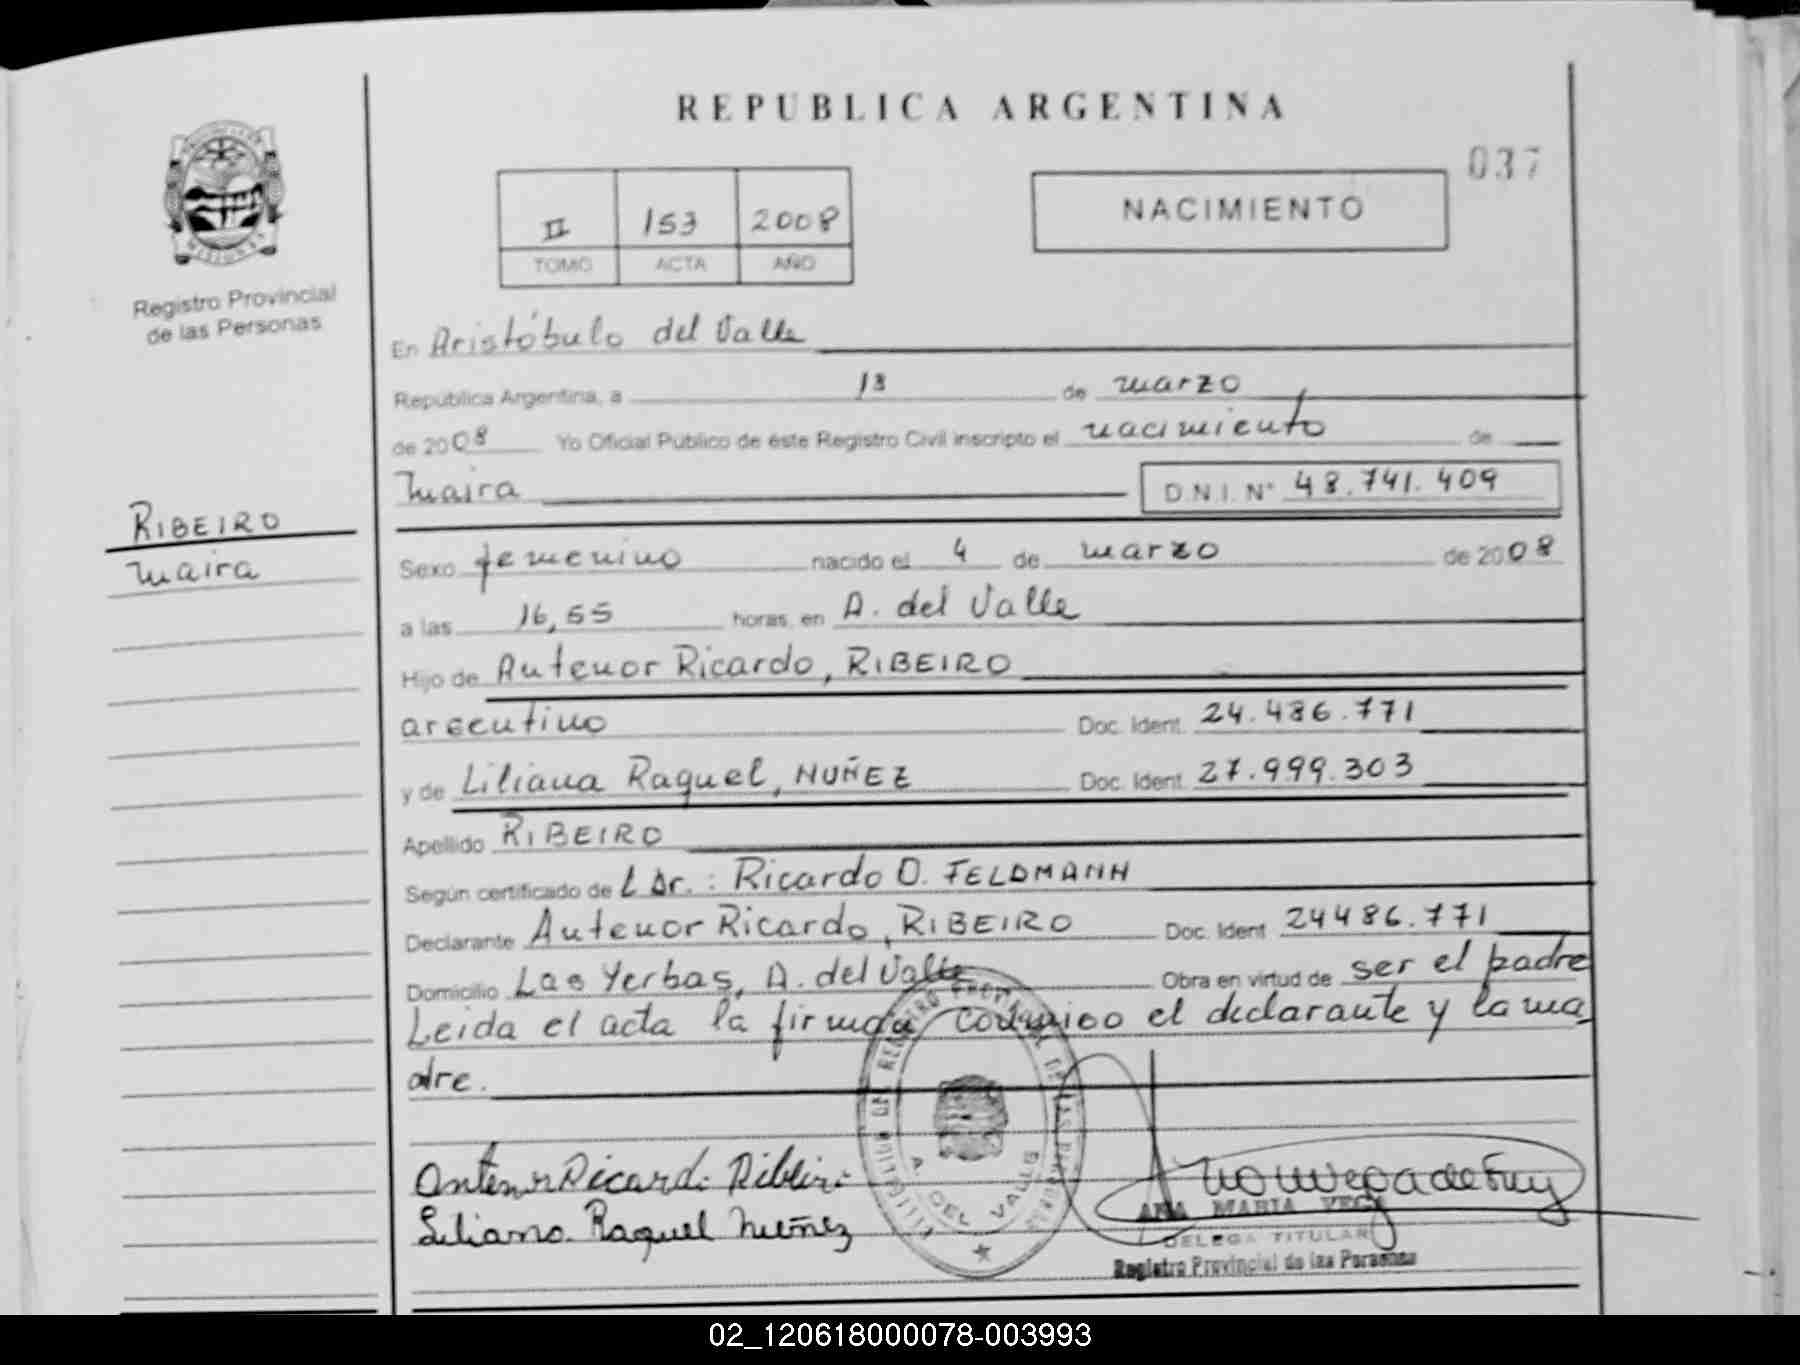 REPUBLICA ARGENTINA
037
II 153 2008
TOMO ACTA AÑO
NACIMIENTO
Registro Provincial
de las Personas
En Aristóbulo del Valle
República Argentina, a 13 de marzo
de 2008 Yo Oficial Público de éste Registro Civil inscripto el nacimiento de
Maira D.N.I. N° 48.741.409
RIBEIRO
Maira
Sexo femenino nacido el 4 de marzo de 2008
a las 16,55 horas, en A. del Valle
Hijo de Antenor Ricardo, RIBEIRO
argentino Doc. Ident. 24.486.771
y de Liliana Raquel, NUÑEZ Doc. Ident. 27.999.303
Apellido RIBEIRO
Según certificado de l Dr.: Ricardo O. FELDMANN
Declarante Antenor Ricardo, RIBEIRO Doc. Ident 24486.771
Domicilio Las Yerbas, A. del Valle Obra en virtud de ser el padre
Leida el acta la firman conmigo el declarante y la ma
dre.
REGISTRO PROVINCIAL DE LAS PERSONAS
A. DEL VALLE
Antenor Ricardo Ribeiro
Liliana Raquel Nuñez
ANA MARIA VEGA
DELEGA TITULAR
Registro Provincial de las Personas
02_120618000078-003993